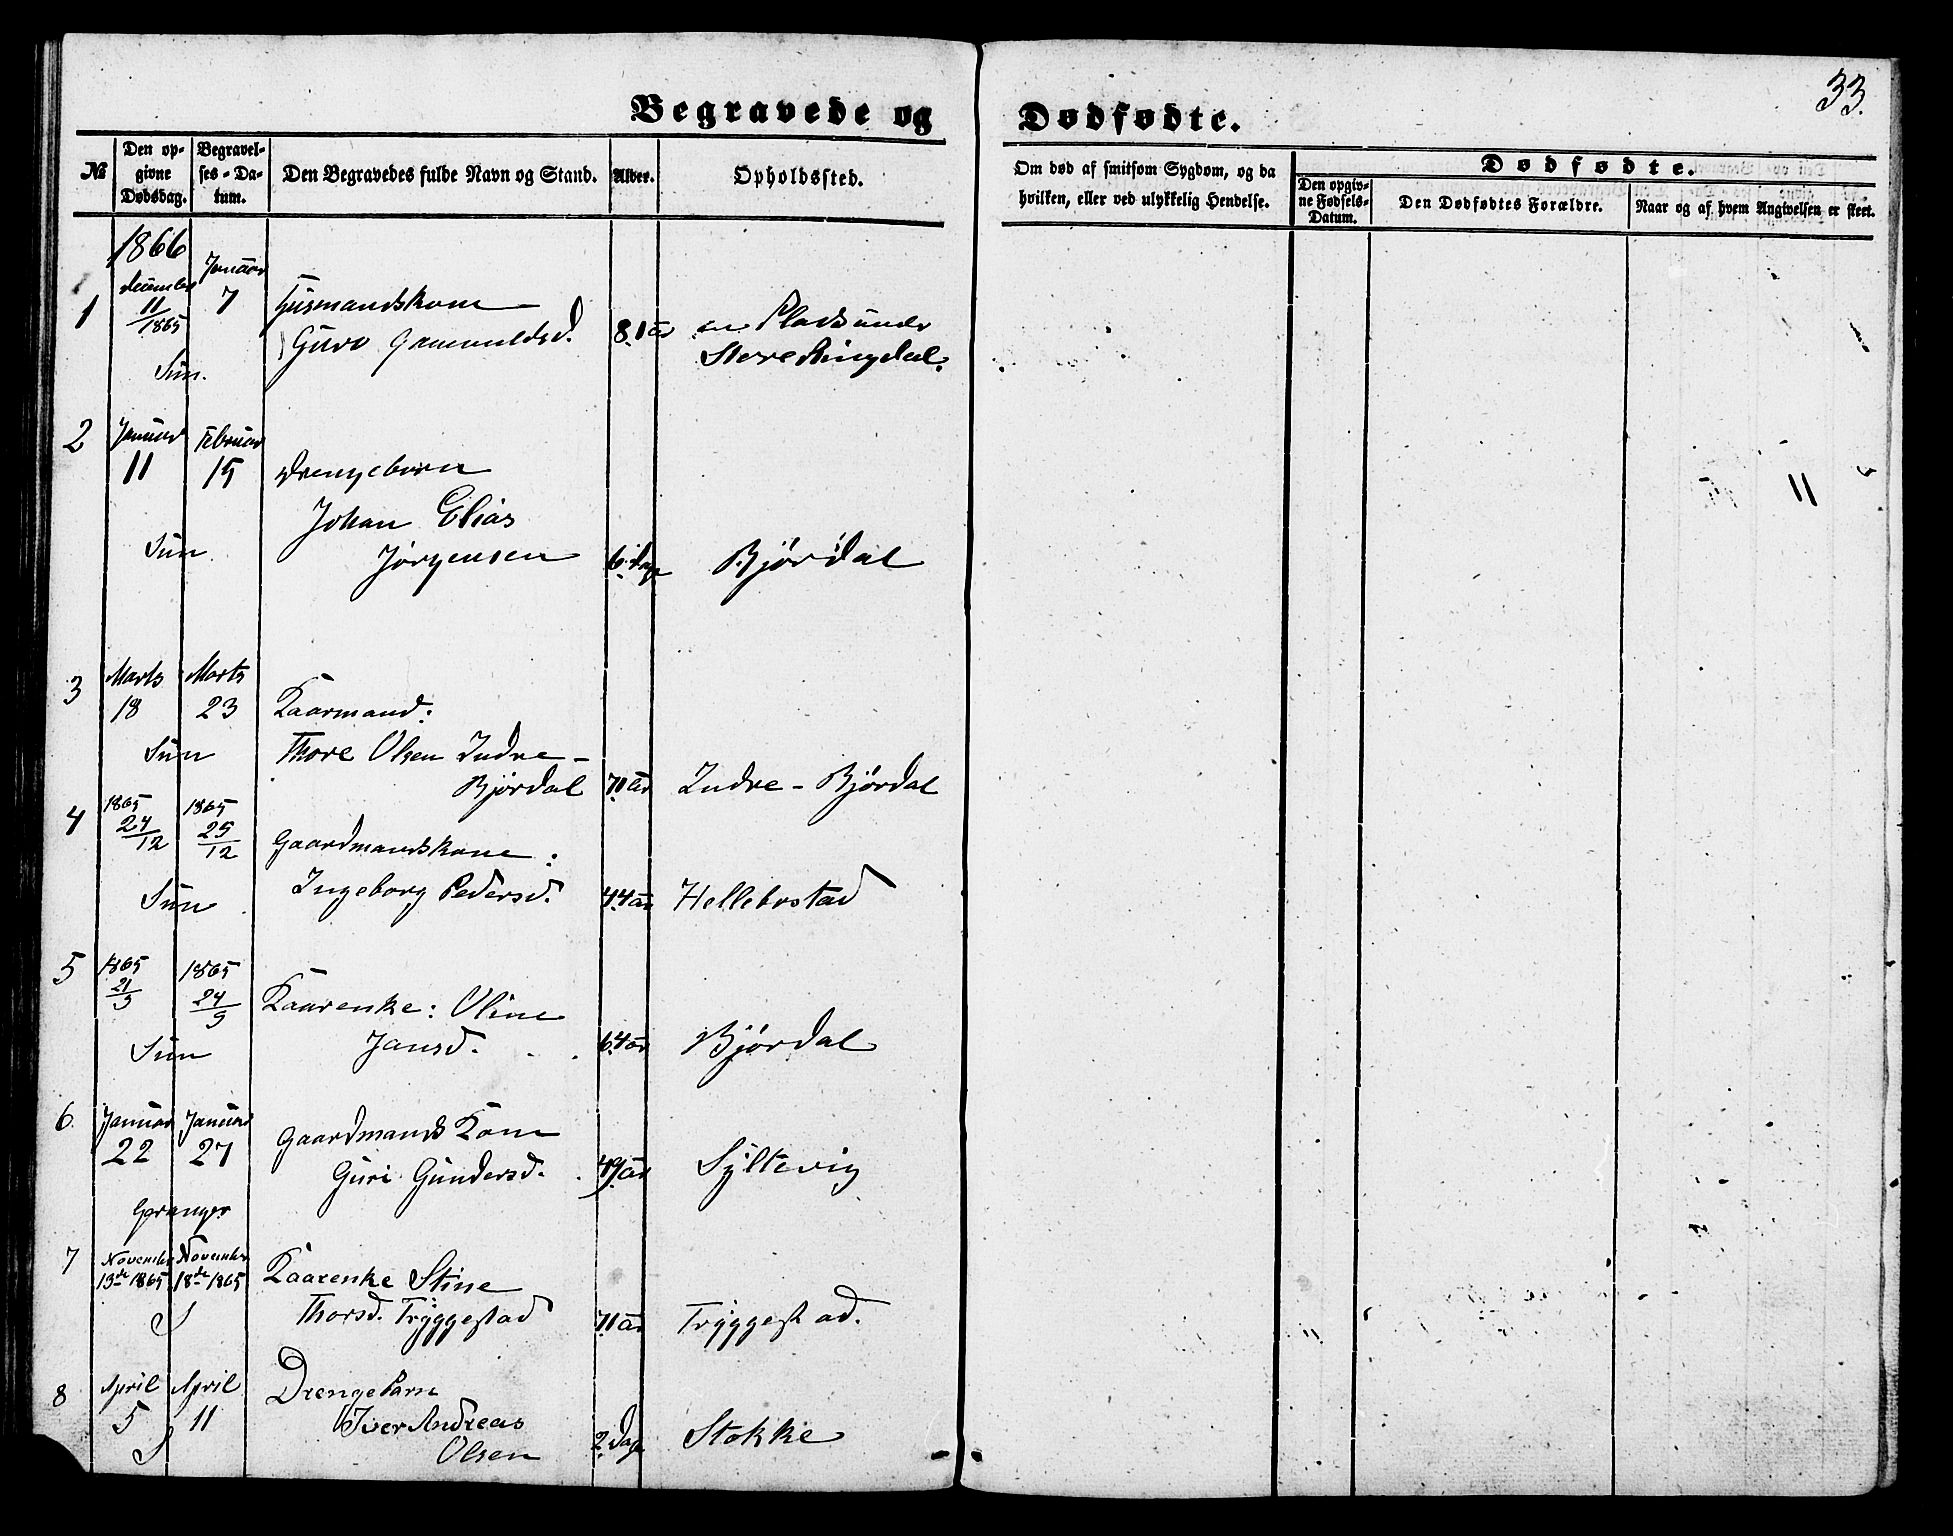 33.
Begravede og Dødfødte.
№
Den opgivne Dødsdag.
Begravelses-Datum.
Den Begravedes fulde Navn og Stand.
Alder.
Opholdssted.
Om død af smitsom Sygdom, og da hvilken, eller ved ulykkelig Hendelse.
Dødfødte.
Den opgivne Fødsels-Datum.
Den Dødfødtes Forældre.
Naar og af hvem Angivelsen er skeet.
1866
1 December 11/1865 Januar 7 Huusmandskone
Guro 81 år en Plads under
Sun. Store Ringdal.
2 Januar 11 Februar 15 Drengebarn
Johan Elias
Sun Jörgensen 6. dage Bjørdal
3 Marts 18 Marts 23 Kaarmand:
Sun Thore Olsen Indre-
Bjørdal 70 år Indre-Bjørdal
4 1865 24/12 1865 25/12 Gaardmandskone:
Sun Ingeborg Pedersd. 44 år Hellebostad
5 1865 21/9 1865 24/9 Kaarenke: Oline
Sun Jansd. 64 år Bjørdal
6. Januar 22 Januar 27 Gaardmands Kone
Guri Gundersd. 49 år Syltevig
Geranger
7 November 13de 1865 November 18de 1865 Kaarenke Stine
S Thorsd. Tryggestad 71 år Tryggestad.
8 April 5 April 11 Drengebarn
Iver Andreas
S Olsen 2 Dage Stokke